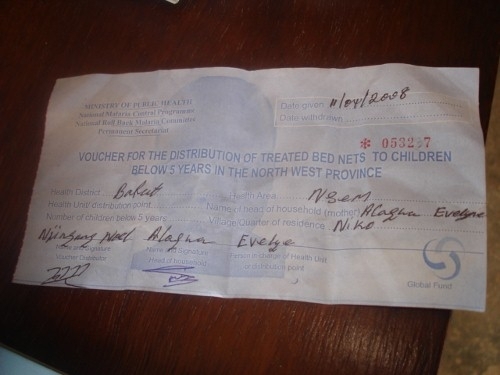 MINISTRY OF PUBLIC HEALTH
National Malaria Control Programme
National Roll Back Malaria Committee
Permanent Secretariat
Date given 11/04/2008
Date withdrawn
* 053297
VOUCHER FOR THE DISTRIBUTION OF TREATED BED NETS TO CHILDREN
BELOW 5 YEARS IN THE NORTH WEST PROVINCE
Health District Bafut Health Area Nsem
Health Unit/distribution point Name of head of household (mother) Alagwa Evelyne
Number of children below 5 years Village/Quarter of residence Niko
Alagwa Evelyne
Name and signature
Voucher Distributor
Name and signature
Head of household
Person in charge of Health Unit
or distribution point
Global Fund